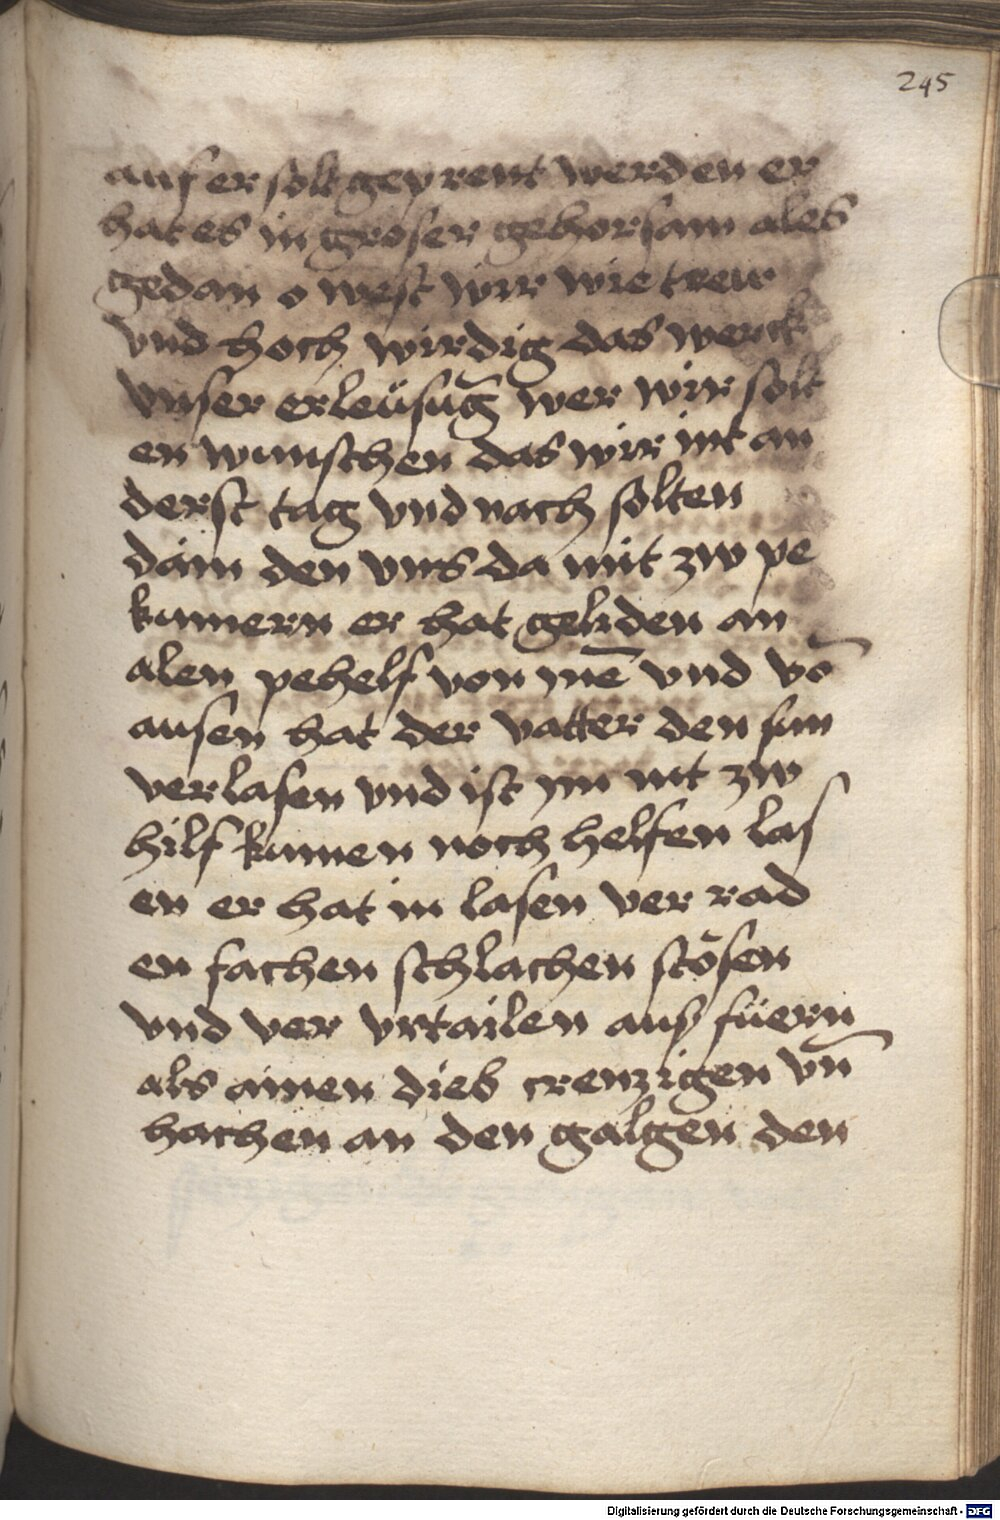 245
auf er solt geprent werden er
hat es in groser gehorsam ales
gedan o west wir wie treur
vnd hoch wirdig das werck
vnser erleüsug̃ wer wir solt
en wunschen das wir nit an
derst tag vnd nach solten
dain den vns da mit zw pe
kumern er hat geliden an
alen pehelf von ynē vnd vō
ausen hat der vatter den sun
verlasen vnd ist ym nit zw
hilf kumen noch helfen las
en er hat in lasen ver rad
en fachen schlachen stösen
vnd ver vrtailen ausfüern
als ainen dieb creuzigen vn̄
hachen an den galgen den
Digitalisierung gefördert durch die Deutsche Forschungsgemeinschaft - DFG